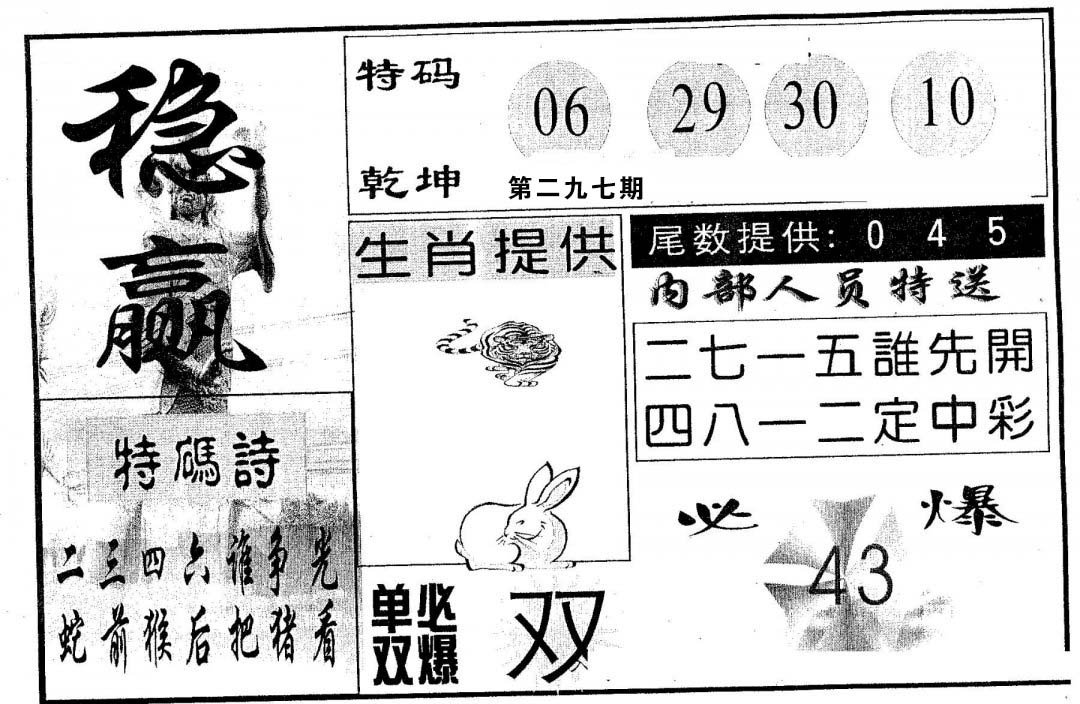 稳赢
特码
06 29 30 10
乾坤
第二九七期
生肖提供
尾数提供: 0 4 5
内部人员特送
二七一五誰先開
四八一二定中彩
特碼詩
二三四六谁争光
蛇前猴后把猪看
单双必爆
双
必爆
43